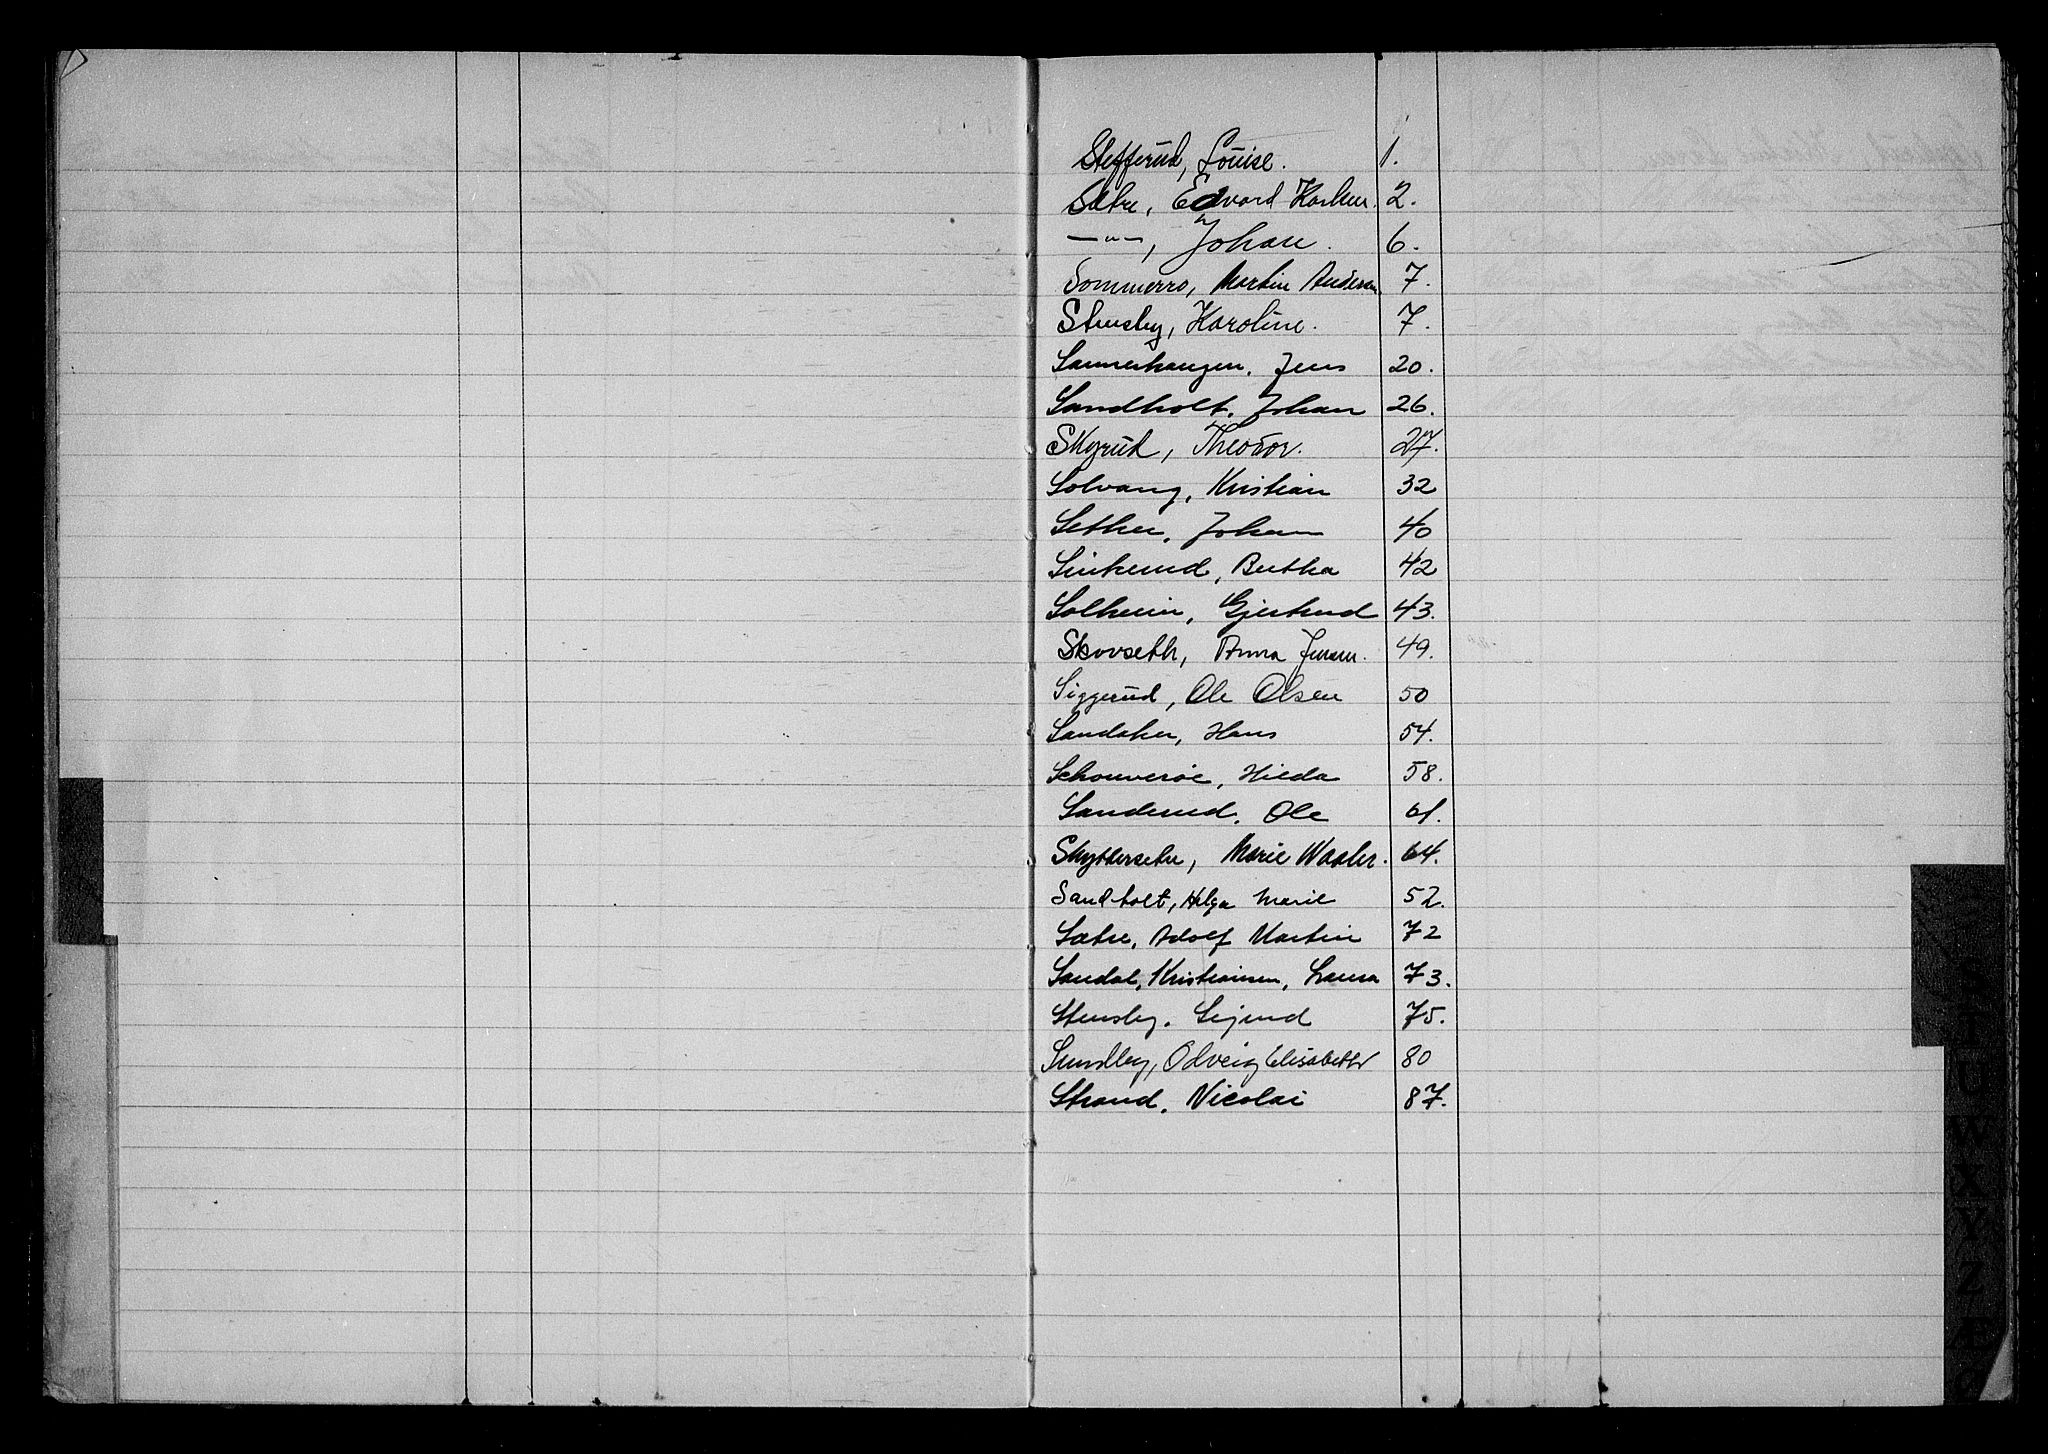 Stefferud, Louise. 1.
Sætre, Edvard 2.
—"—, Johan. 6.
Sommerro, Martin Andersen. 7.
Stensby, Karoline. 7.
Sannerhaugen, Jens 20.
Sandholt, Johan 26.
Skyrud, Theodor. 27.
Solvang, Kristian 32
Sether, Johan 40
Sinkerud, Bertha 42
Solheim, Gjertrud 43.
Skovseth, Anna Jensen. 49.
Siggerud, Ole Olsen 50
Sandaker, Hans 54.
Schouverøe, Hilda 58.
Sanderud, Ole 61.
Skyttersetre, Marie Waaler. 64.
Sandholt, Helga Marie 52.
Sætre, Adolf Martin 72
Sandal, Kristiansen, Laura 73.
Stensby, Sigurd 75.
Sundby, Odveig Elisabeth 80
Strand, Nicolai 87.
S
T
U
W
X
Y
Z
Æ